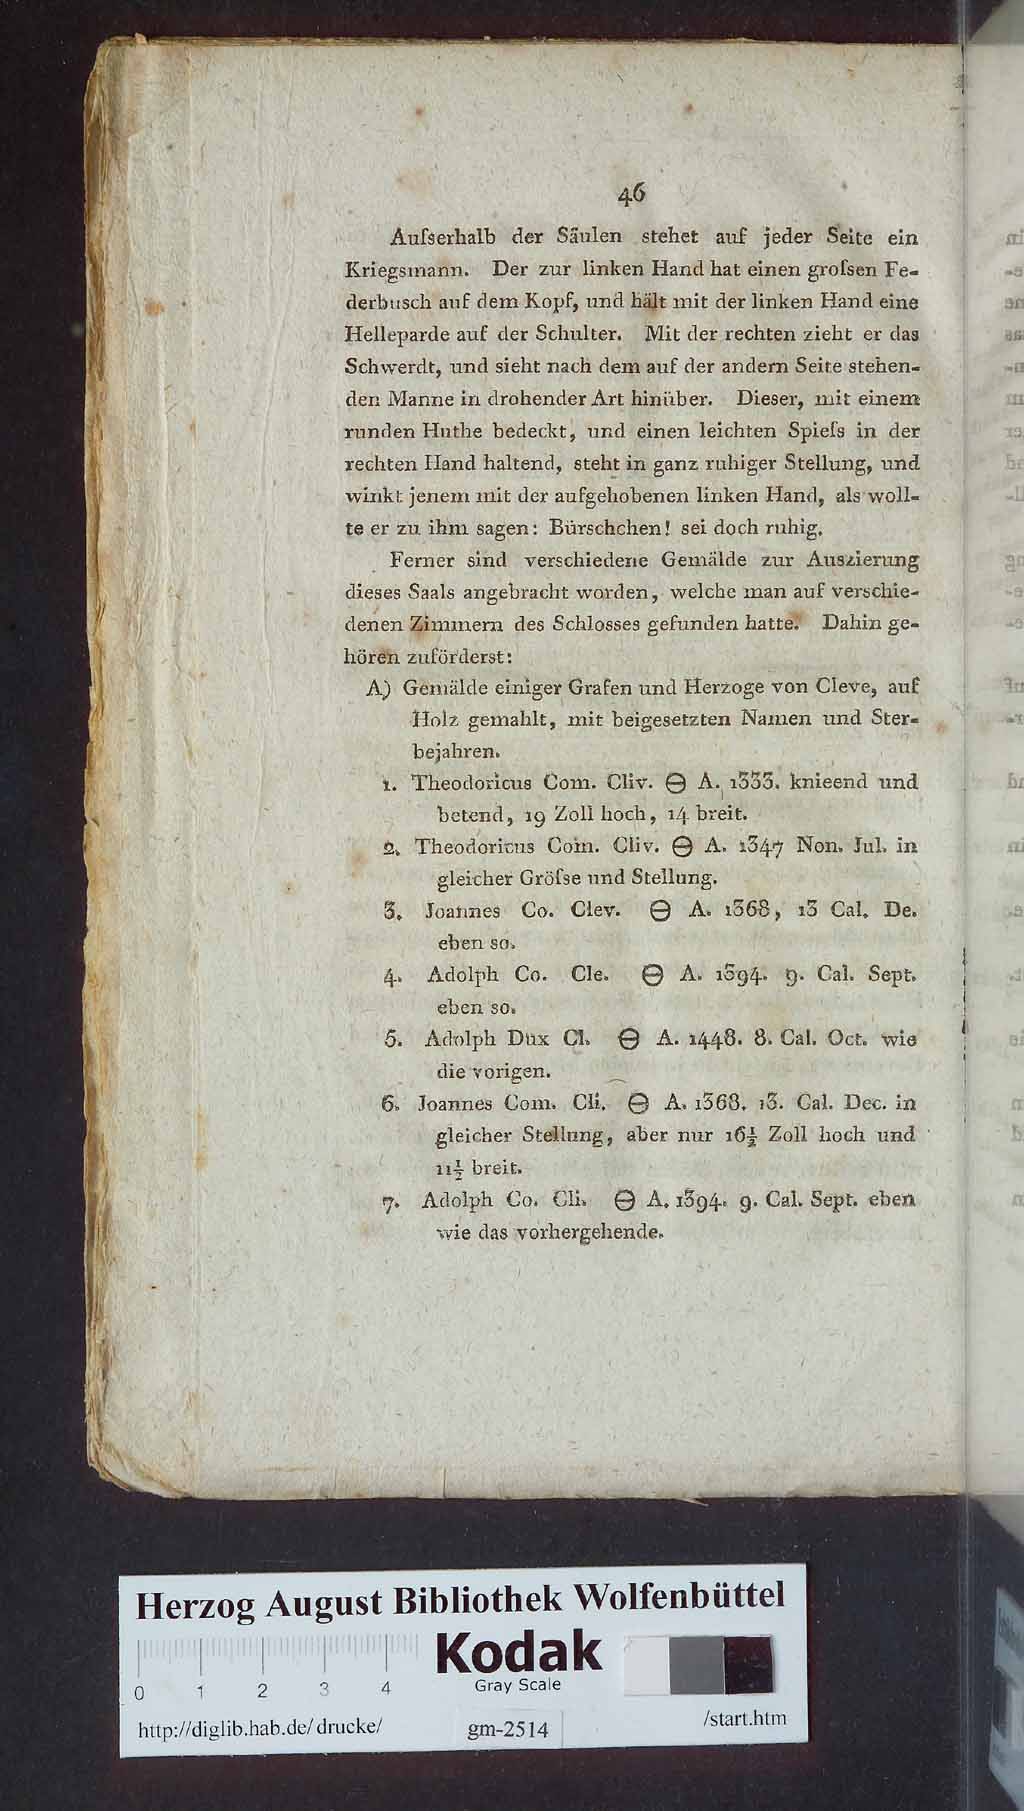 46
Aufserhalb der Säulen stehet auf jeder Seite ein
Kriegsmann. Der zur linken Hand hat einen grofsen Fe-
derbusch auf dem Kopf, und hält mit der linken Hand eine
Helleparde auf der Schulter. Mit der rechten zieht er das
Schwerdt, und sieht nach dem auf der andern Seite stehen-
den Manne in drohender Art hinüber. Dieser, mit einem
runden Huthe bedeckt, und einen leichten Spiefs in der
rechten Hand haltend, steht in ganz ruhiger Stellung, und
winkt jenem mit der aufgehobenen linken Hand, als woll-
te er zu ihm sagen: Bürschchen! sei doch ruhig.
Ferner sind verschiedene Gemälde zur Auszierung
dieses Saals angebracht worden, welche man auf verschie-
denen Zimmern des Schlosses gefunden hatte. Dahin ge-
hören zuförderst:
A) Gemälde einiger Grafen und Herzoge von Cleve, auf
Holz gemahlt, mit beigesetzten Namen und Ster-
bejahren.
1. Theodoricus Com. Cliv. Ꝋ A. 1333. knieend und
betend, 19 Zoll hoch, 14 breit.
2. Theodoricus Com. Cliv. Ꝋ A. 1347 Non. Jul. in
gleicher Gröfse und Stellung.
3. Joannes Co. Clev. Ꝋ A. 1368, 13 Cal. De.
eben so.
4. Adolph Co. Cle. Ꝋ A. 1394. 9. Cal. Sept.
eben so.
5. Adolph Dux Cl. Ꝋ A. 1448. 8. Cal. Oct. wie
die vorigen.
6. Joannes Com. Cli. Ꝋ A. 1368. 13. Cal. Dec. in
gleicher Stellung, aber nur 16½ Zoll hoch und
11½ breit.
7. Adolph Co. Cli. Ꝋ A. 1394. 9. Cal. Sept. eben
wie das vorhergehende.
Herzog August Bibliothek Wolfenbüttel
Kodak
Gray Scale
0 1 2 3 4
http://diglib.hab.de/drucke/ gm-2514 /start.htm